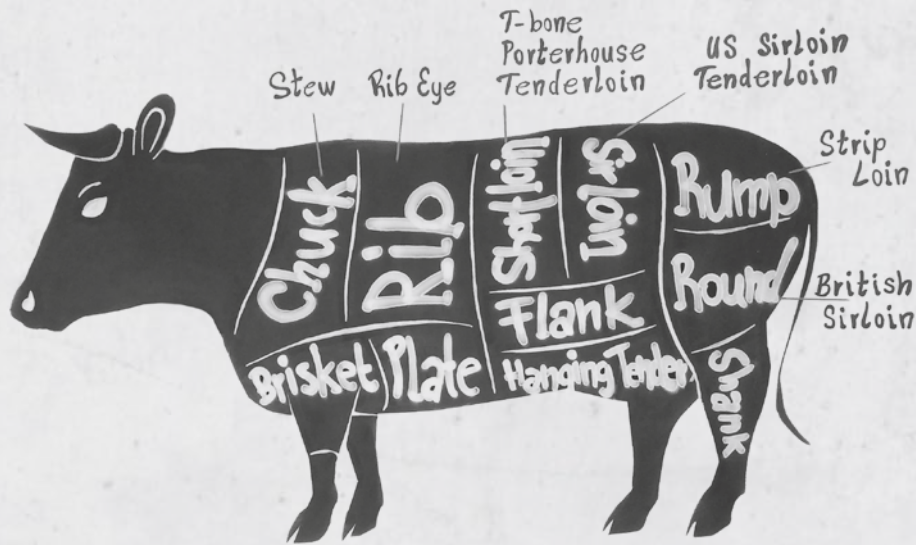 T-bone
Porterhouse
Tenderloin
US Sirloin
Tenderloin
Stew
Rib Eye
Strip
Loin
British
Sirloin
Chuck
Rib
Shortloin
Sirloin
Rump
Round
Flank
Brisket
Plate
Hanging Tender
Shank